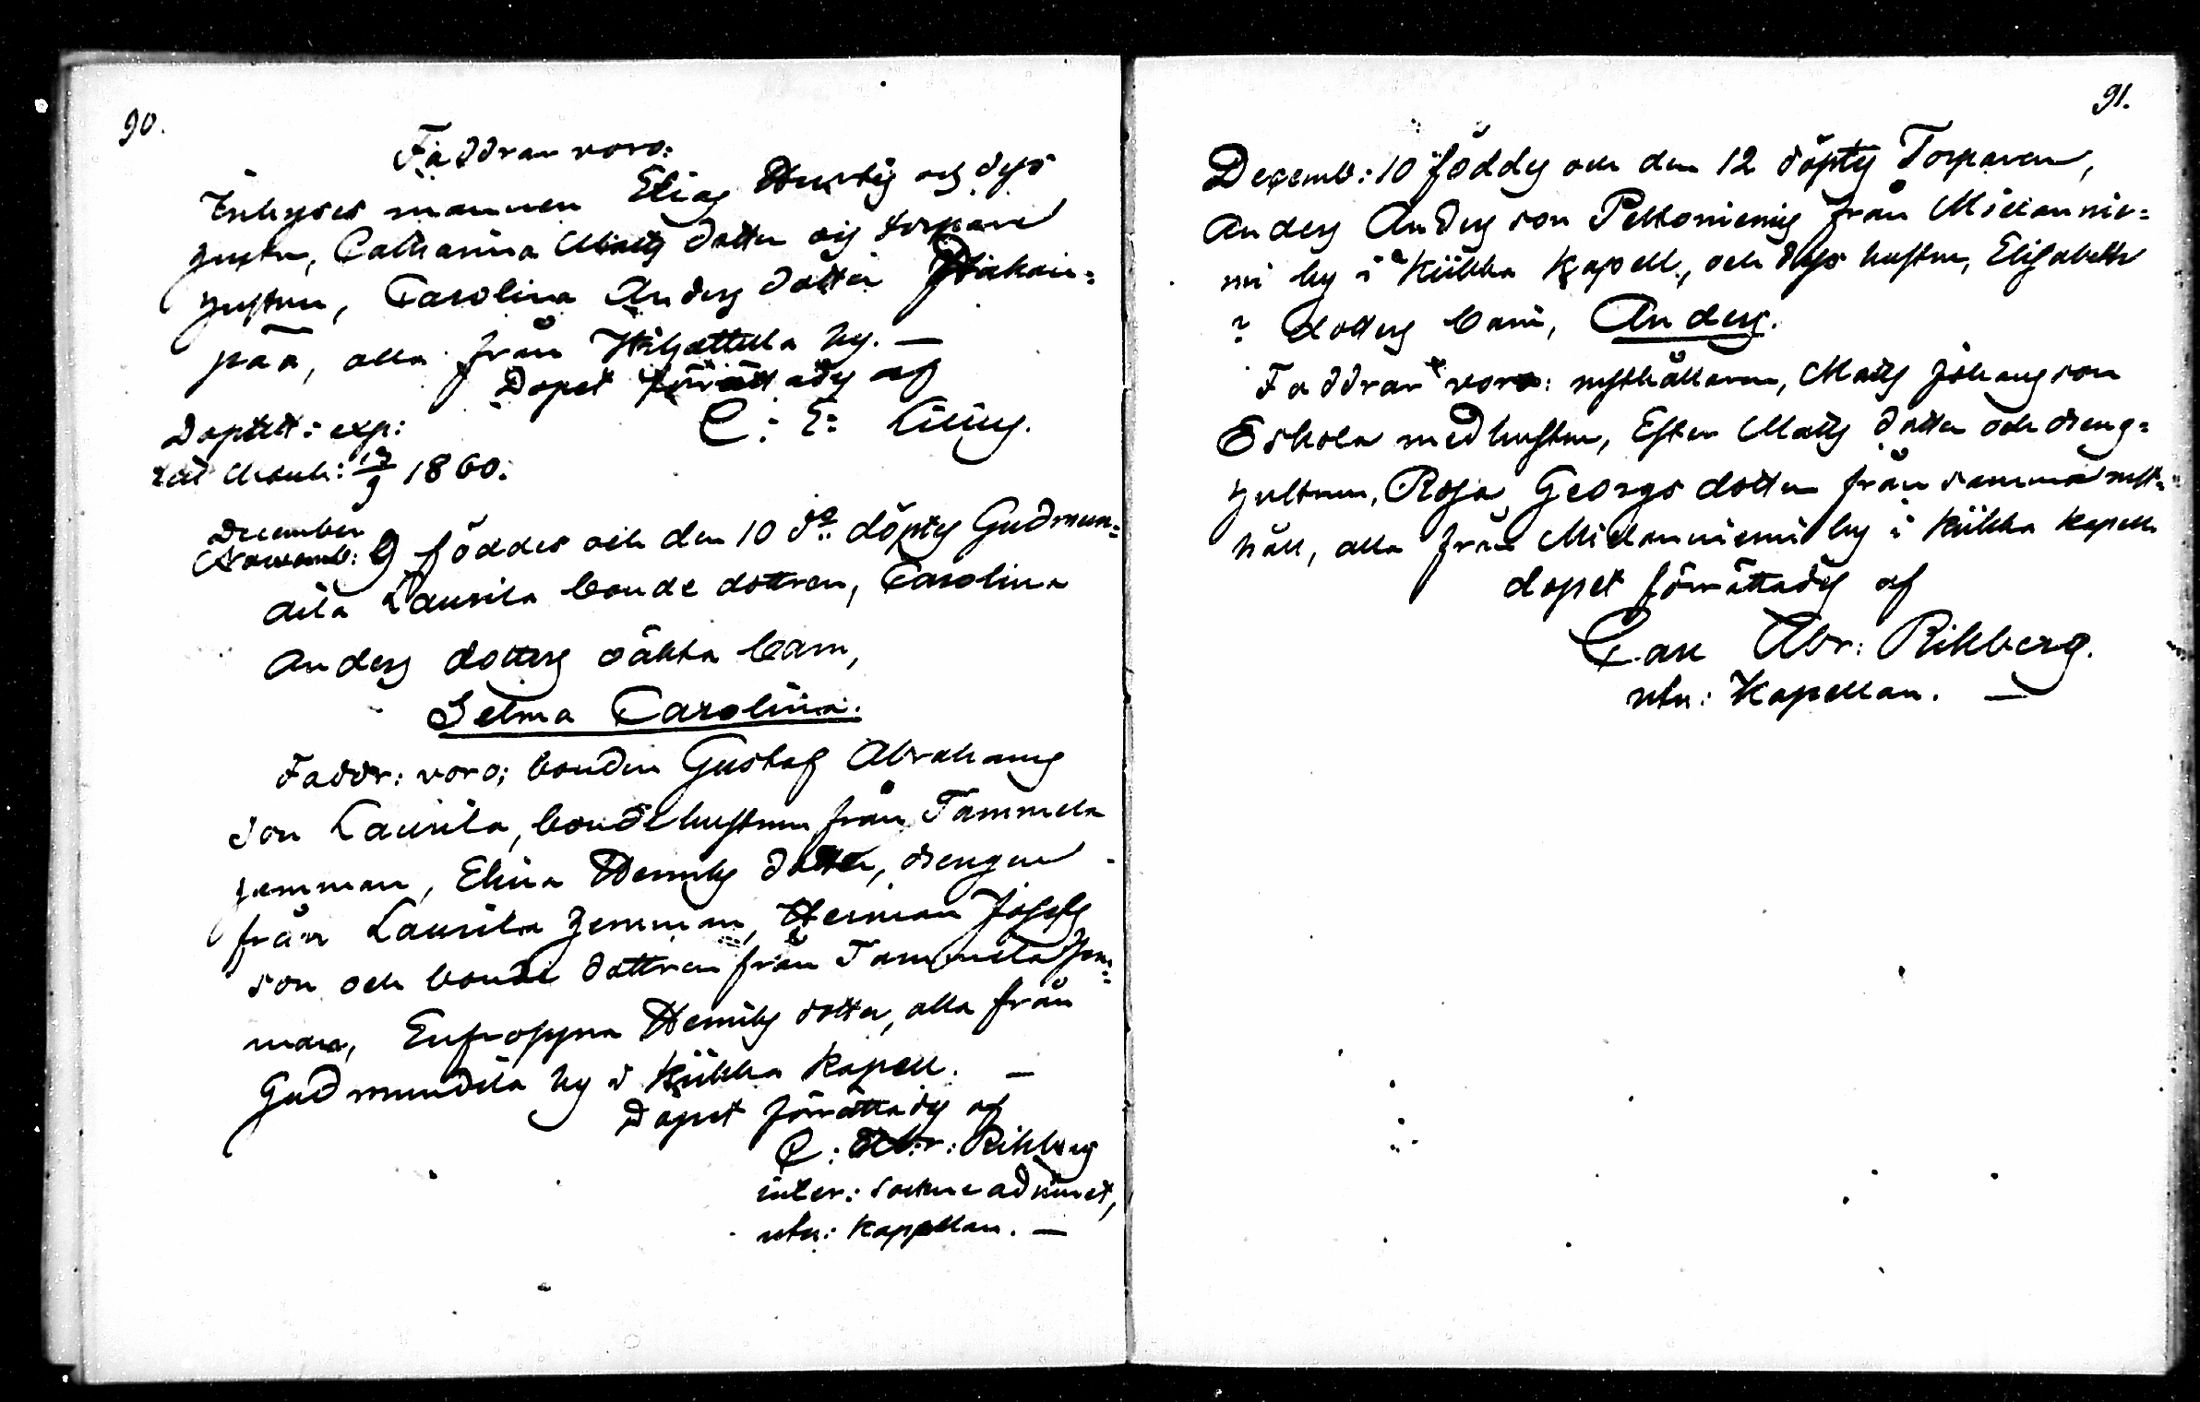 90.
Faddrar voro:
Inhyses mannen Elias Hurtig och dess
hustru, Catharina Matts dotter och torpare
hustrun, Carolina Anders dotter Hakain=
pää, alla från Wiljattula by. —
Dopet förrättades af
C: E: Lilius.
Dopatt: exp:
1860.
December
Novemb: 9 föddes och den 10 do döptes Gudmun=
dila Laurila bonde dottren, Carolina
Anders dotters oäkta barn,
Selma Carolina.
Faddr: voro; bonden Gustaf Abrahams
son Laurila, bonde hustrun från Tammela
hemman, Elina Henriks dotter, drengen
från Laurila hemman, Herman Josefs
son och bonde dottren från Tammela hem=
man, Eufrosyna Henriks dotter, alla från
Gudmundila by i Kiikka Kapell. —
Dopet förrättades af
C: Abr: Rikberg
inter: sockne adjunct,
utn: Kappellan. —
91.
Decemb: 10 föddes och den 12 döptes Torparen,
Anders Anders son Peltoniemis från Mielannie=
mi by i Kiikka Kapell, och dess hustru, Elisabeth
? dotters barn, Anders.
Faddrar voro: rusthållaren, Matts Johans son
Eskola med hustru, Ester Matts dotter och dreng=
hustrun, Rosa Georgs dotter från samma rust=
håll, alla från Mielanniemi by i Kiikka Kapell
dopet förrättades af
Carl Abr: Rikberg.
utn: Kapellan. —